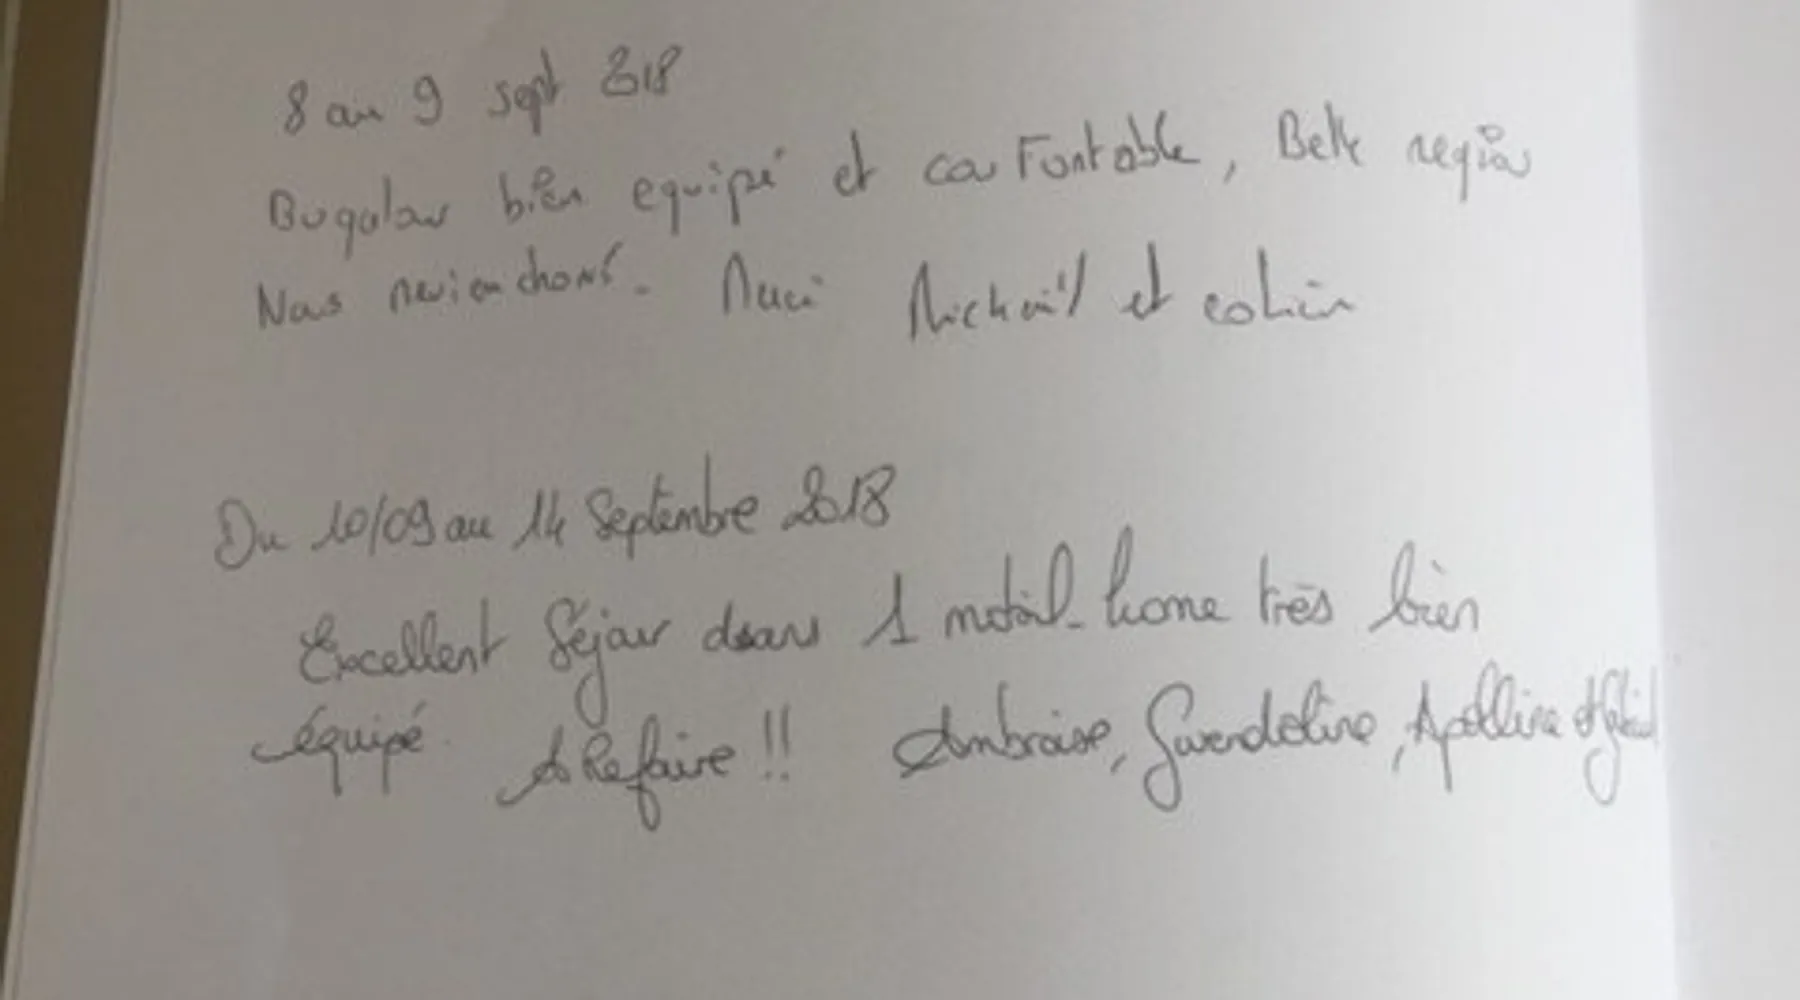 8 au 9 sept 2018
Bugalow bien equipé et confontable, Belle region
Nous reviendrons. Merci Mickaël et
Du 10/09 au 14 Septembre 2018
Excellent Séjour dans 1 mobil-home très bien
équipé. A Refaire !! Ambroise, Gwendoline, Apolline et